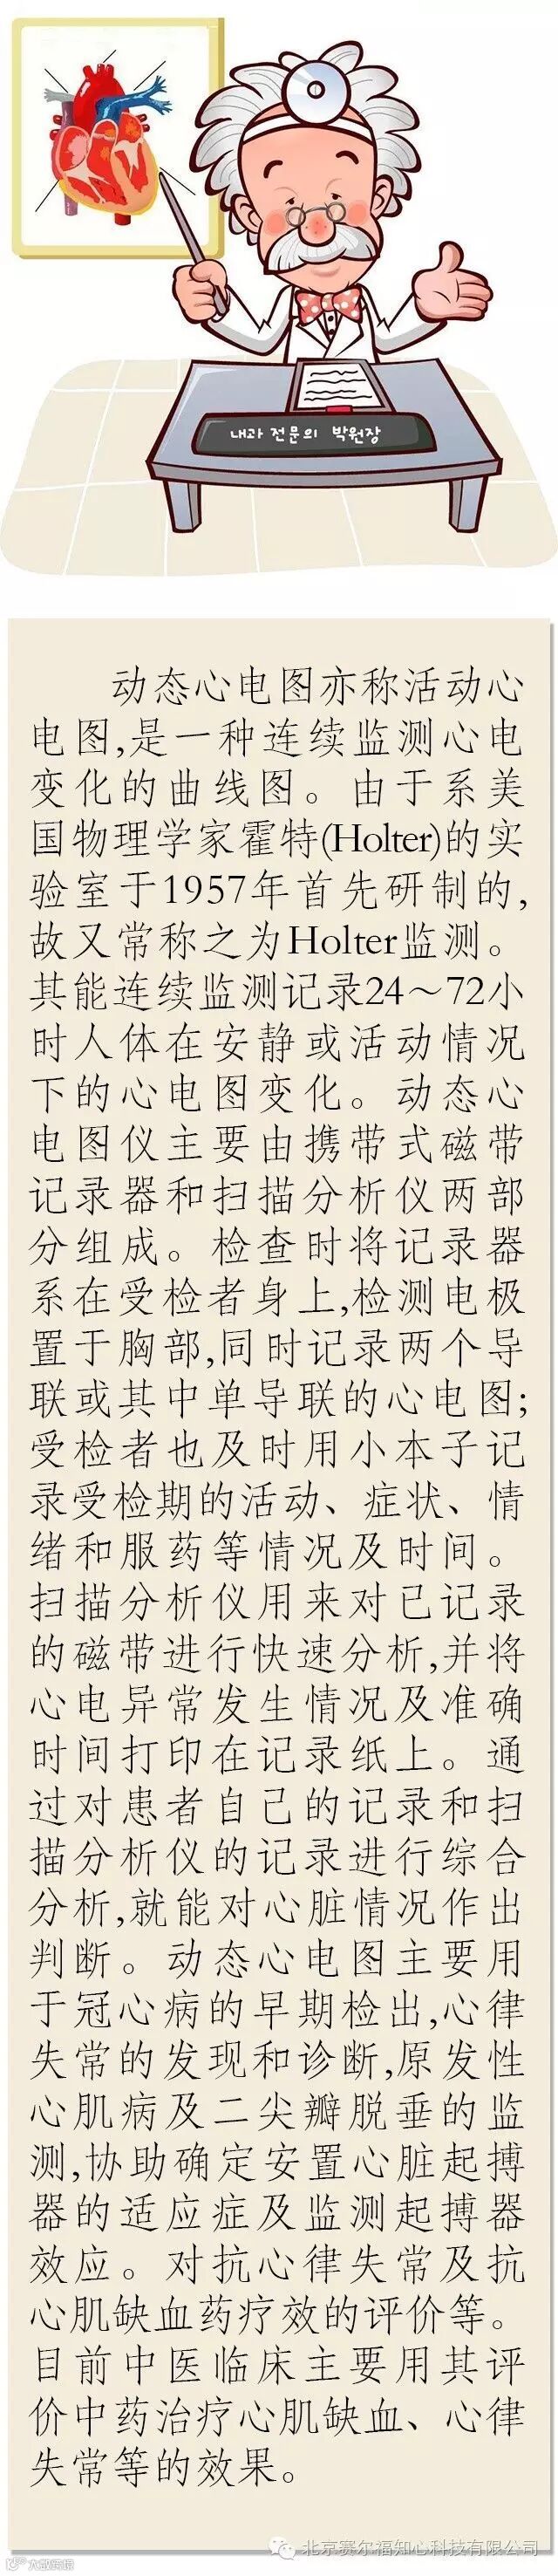 내과 전문의 박원장
动态心电图亦称活动心
电图,是一种连续监测心电
变化的曲线图。由于系美
国物理学家霍特(Holter)的实
验室于1957年首先研制的,
故又常称之为Holter监测。
其能连续监测记录24～72小
时人体在安静或活动情况
下的心电图变化。动态心
电图仪主要由携带式磁带
记录器和扫描分析仪两部
分组成。检查时将记录器
系在受检者身上,检测电极
置于胸部,同时记录两个导
联或其中单导联的心电图;
受检者也及时用小本子记
录受检期的活动、症状、情
绪和服药等情况及时间。
扫描分析仪用来对已记录
的磁带进行快速分析,并将
心电异常发生情况及准确
时间打印在记录纸上。通
过对患者自己的记录和扫
描分析仪的记录进行综合
分析,就能对心脏情况作出
判断。动态心电图主要用
于冠心病的早期检出,心律
失常的发现和诊断,原发性
心肌病及二尖瓣脱垂的监
测,协助确定安置心脏起搏
器的适应症及监测起搏器
效应。对抗心律失常及抗
心肌缺血药疗效的评价等。
目前中医临床主要用其评
价中药治疗心肌缺血、心律
失常等的效果。
北京赛尔福知心科技有限公司